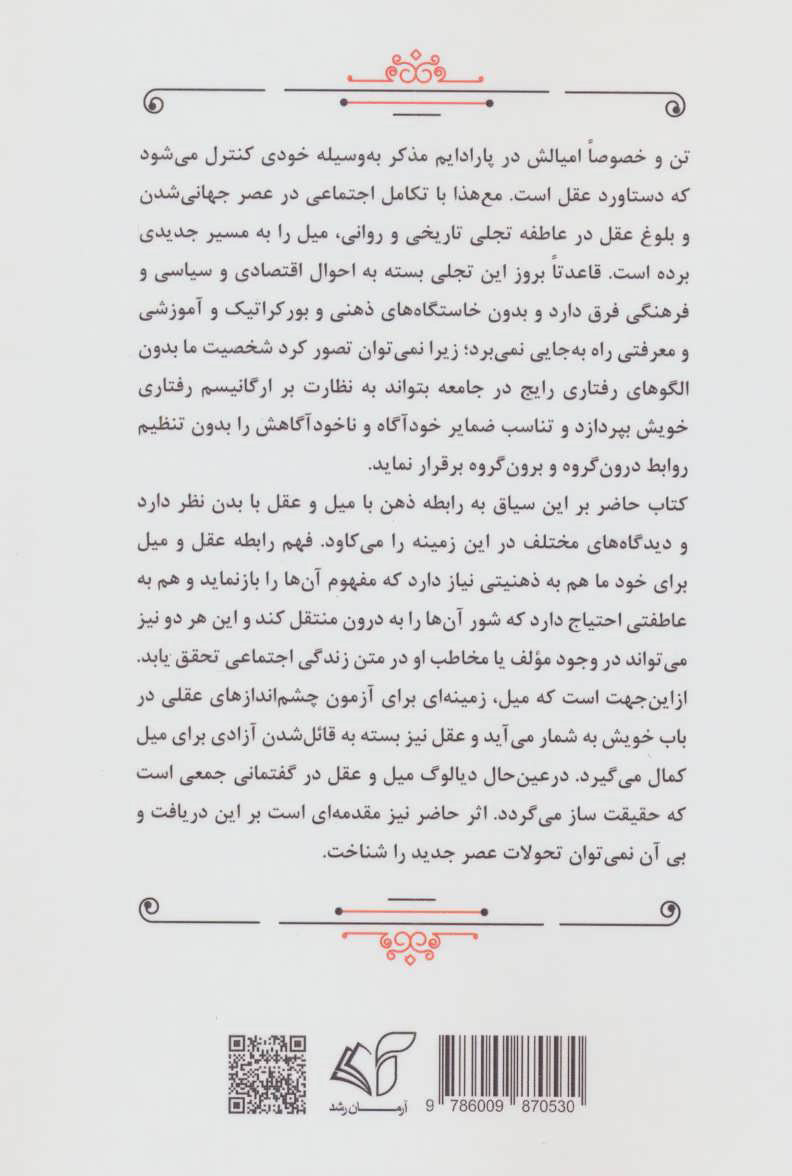 تن و خصوصاً امیالش در پارادایم مذکر به‌وسیله خودی کنترل می‌شود
که دستاورد عقل است. مع‌هذا با تکامل اجتماعی در عصر جهانی‌شدن
و بلوغ عقل در عاطفه تجلی تاریخی و روانی، میل را به مسیر جدیدی
برده است. قاعدتاً بروز این تجلی بسته به احوال اقتصادی و سیاسی و
فرهنگی فرق دارد و بدون خاستگاه‌های ذهنی و بورکراتیک و آموزشی
و معرفتی راه به‌جایی نمی‌برد؛ زیرا نمی‌توان تصور کرد شخصیت ما بدون
الگوهای رفتاری رایج در جامعه بتواند به نظارت بر ارگانیسم رفتاری
خویش بپردازد و تناسب ضمایر خودآگاه و ناخودآگاهش را بدون تنظیم
روابط درون‌گروه و برون‌گروه برقرار نماید.
کتاب حاضر بر این سیاق به رابطه ذهن با میل و عقل با بدن نظر دارد
و دیدگاه‌های مختلف در این زمینه را می‌کاود. فهم رابطه عقل و میل
برای خود ما هم به ذهنیتی نیاز دارد که مفهوم آن‌ها را بازنماید و هم به
عاطفتی احتیاج دارد که شور آن‌ها را به درون منتقل کند و این هر دو نیز
می‌تواند در وجود مؤلف یا مخاطب او در متن زندگی اجتماعی تحقق یابد.
ازاین‌جهت است که میل، زمینه‌ای برای آزمون چشم‌اندازهای عقلی در
باب خویش به شمار می‌آید و عقل نیز بسته به قائل‌شدن آزادی برای میل
کمال می‌گیرد. درعین‌حال دیالوگ میل و عقل در گفتمانی جمعی است
که حقیقت ساز می‌گردد. اثر حاضر نیز مقدمه‌ای است بر این دریافت و
بی آن نمی‌توان تحولات عصر جدید را شناخت.
آرمان رشد
9 786009 870530